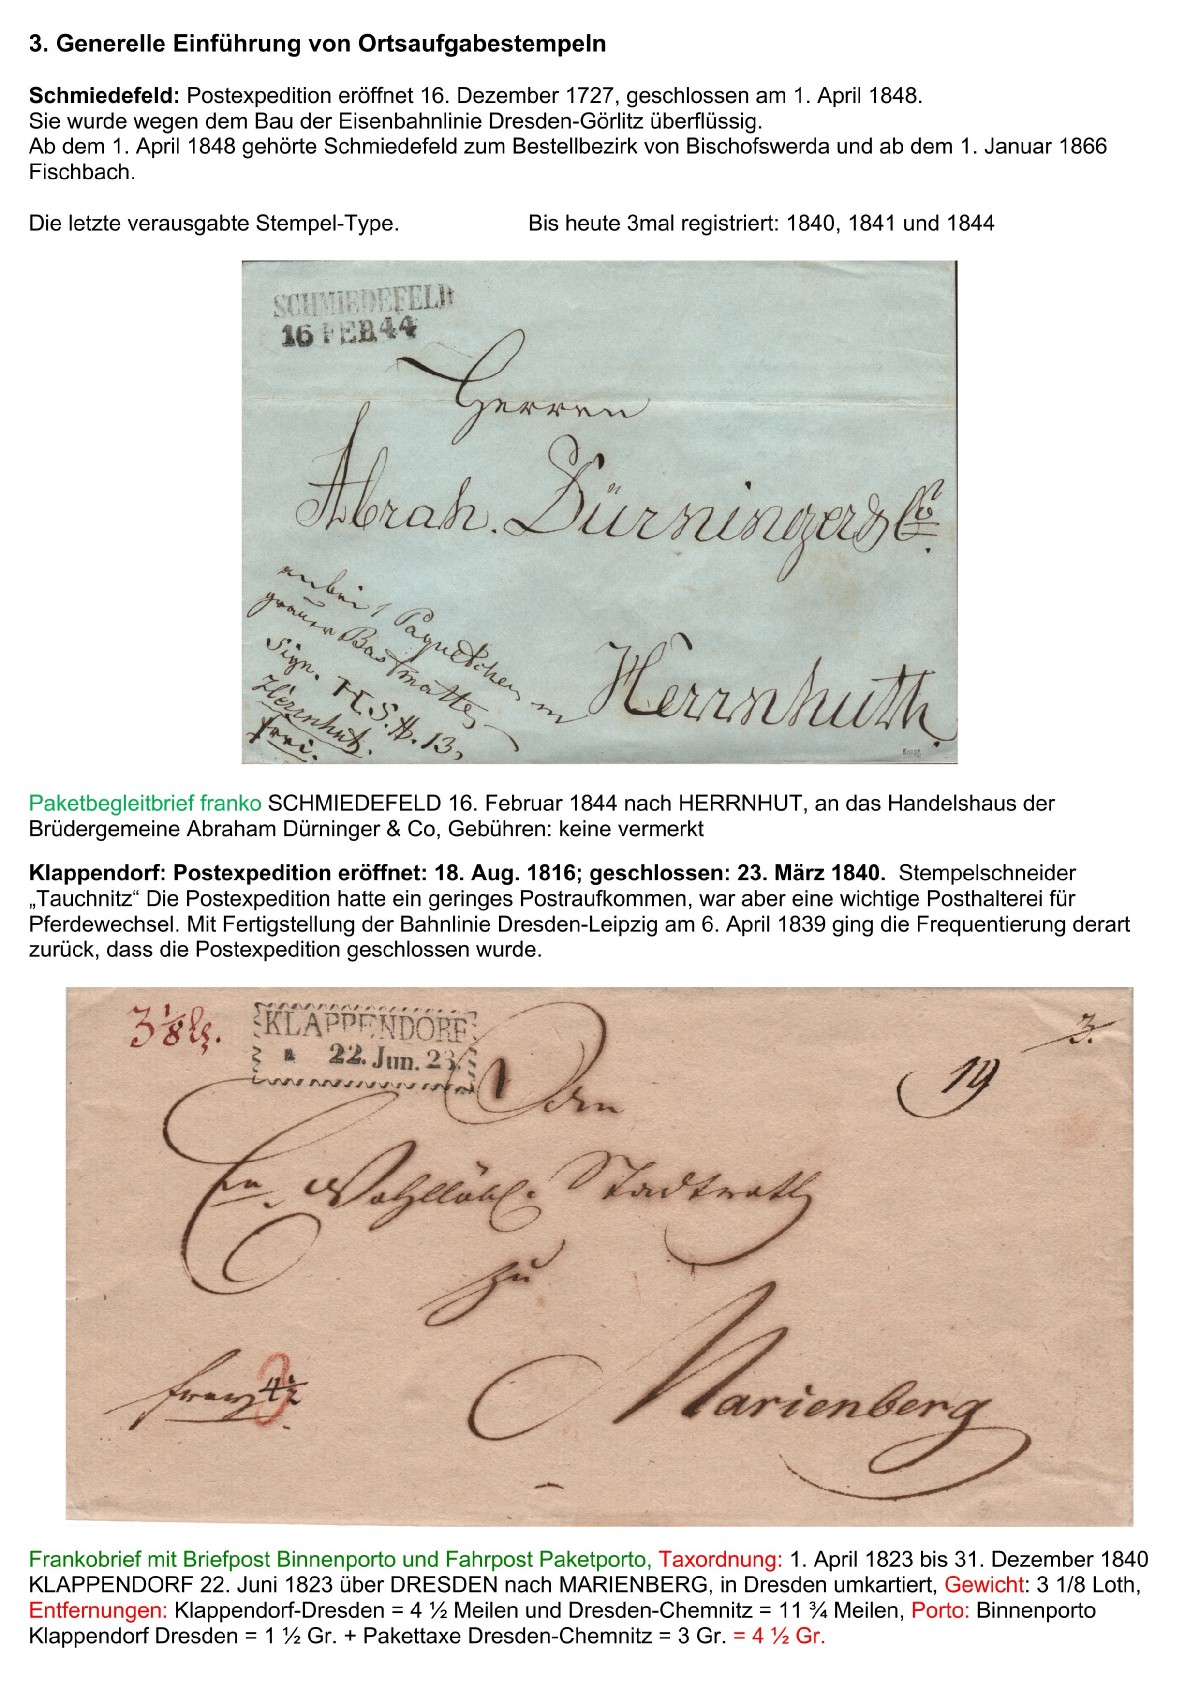 3. Generelle Einführung von Ortsaufgabestempeln
Schmiedefeld: Postexpedition eröffnet 16. Dezember 1727, geschlossen am 1. April 1848.
Sie wurde wegen dem Bau der Eisenbahnlinie Dresden-Görlitz überflüssig.
Ab dem 1. April 1848 gehörte Schmiedefeld zum Bestellbezirk von Bischofswerda und ab dem 1. Januar 1866
Fischbach.
Die letzte verausgabte Stempel-Type. Bis heute 3mal registriert: 1840, 1841 und 1844
SCHMIEDEFELD
16 FEB 44
Herren
Abrah. Dürninger & Co.
anbei 1 Paquetchen in
grauer Bastmatte,
Sign. H.S.H. 13,
Herrnhut.
frei.
Herrnhuth.
Paketbegleitbrief franko SCHMIEDEFELD 16. Februar 1844 nach HERRNHUT, an das Handelshaus der
Brüdergemeine Abraham Dürninger & Co, Gebühren: keine vermerkt
Klappendorf: Postexpedition eröffnet: 18. Aug. 1816; geschlossen: 23. März 1840. Stempelschneider
„Tauchnitz“ Die Postexpedition hatte ein geringes Postraufkommen, war aber eine wichtige Posthalterei für
Pferdewechsel. Mit Fertigstellung der Bahnlinie Dresden-Leipzig am 6. April 1839 ging die Frequentierung derart
zurück, dass die Postexpedition geschlossen wurde.
3 1/8 Lt.
KLAPPENDORF
22. Jun. 23.
3.
19
Dem
Wohllöbl. Stadtrath
zu
Marienberg
franco
4 ½
Frankobrief mit Briefpost Binnenporto und Fahrpost Paketporto, Taxordnung: 1. April 1823 bis 31. Dezember 1840
KLAPPENDORF 22. Juni 1823 über DRESDEN nach MARIENBERG, in Dresden umkartiert, Gewicht: 3 1/8 Loth,
Entfernungen: Klappendorf-Dresden = 4 ½ Meilen und Dresden-Chemnitz = 11 ¾ Meilen, Porto: Binnenporto
Klappendorf Dresden = 1 ½ Gr. + Pakettaxe Dresden-Chemnitz = 3 Gr. = 4 ½ Gr.